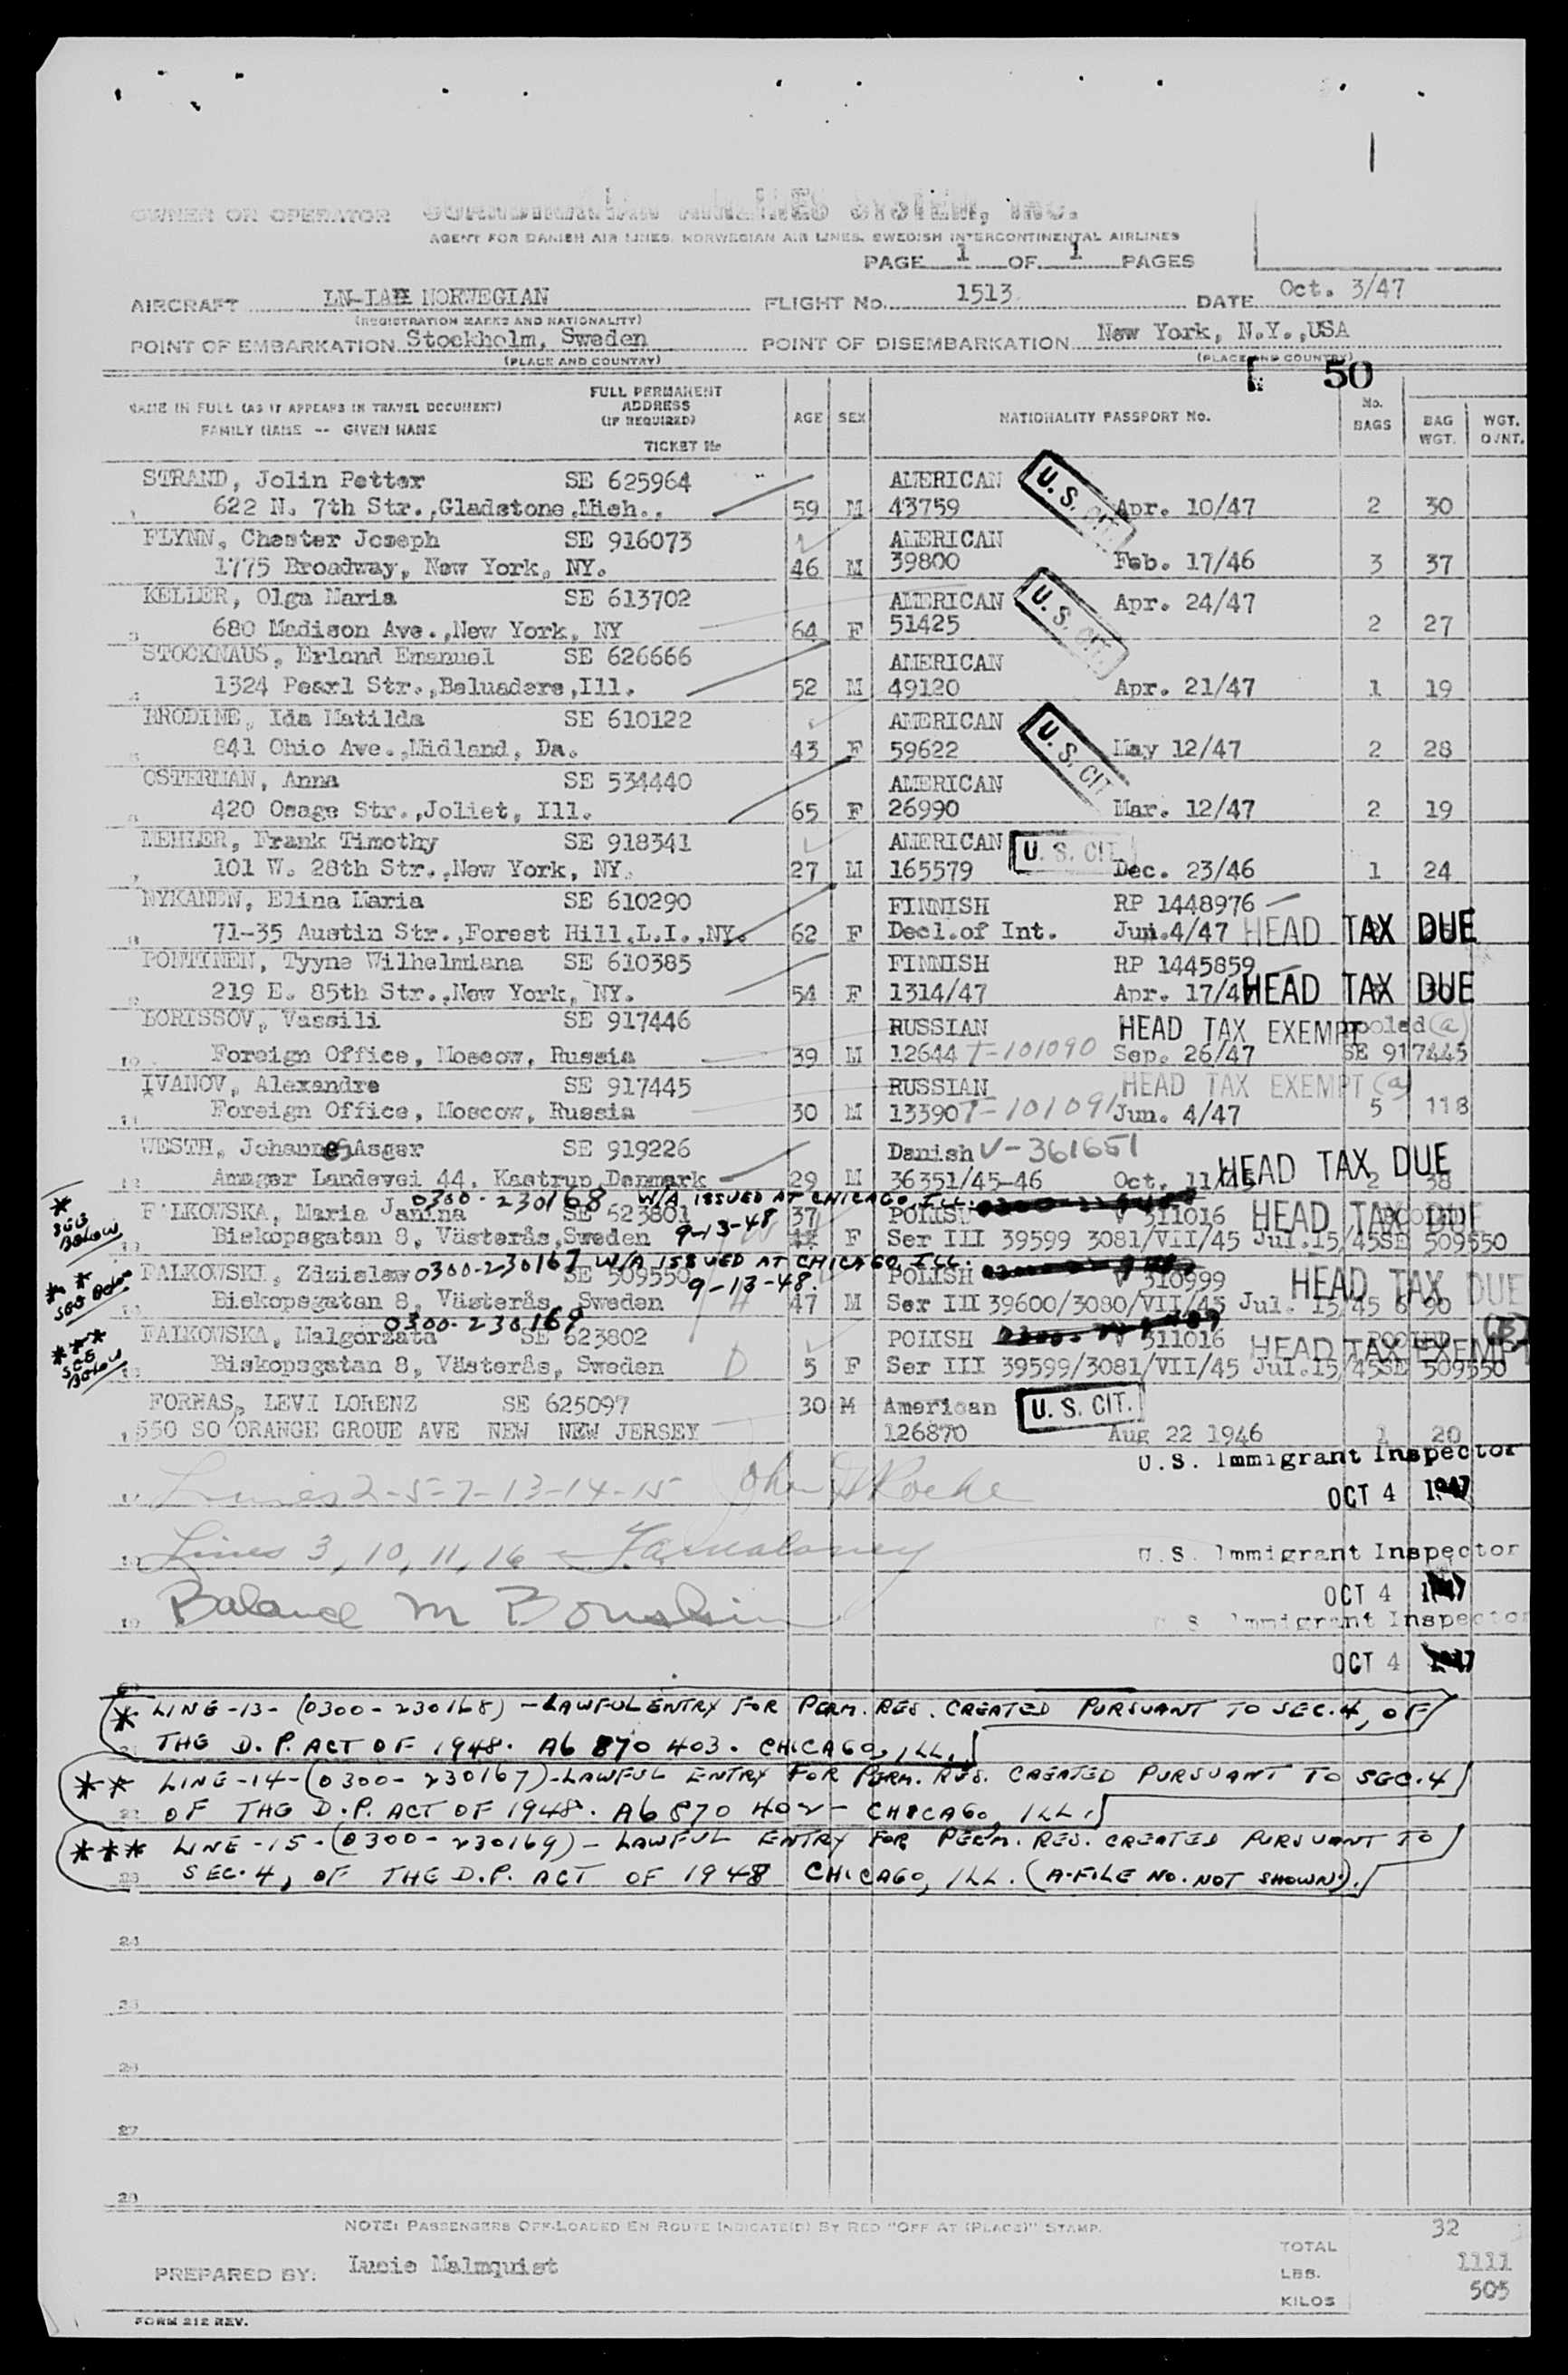 OWNER OR OPERATOR SYSTEM, INC.
AGENT FOR DANISH AIR LINES, NORWEGIAN AIR LINES, SWEDISH INTERCONTINENTAL AIRLINES
PAGE 1 OF 1 PAGES
AIRCRAFT NORWEGIAN FLIGHT No. 1513 DATE Oct. 3/47
(REGISTRATION MARKS AND NATIONALITY)
POINT OF EMBARKATION Stockholm, Sweden POINT OF DISEMBARKATION New York, N.Y.,USA
(PLACE AND COUNTRY) (PLACE AND COUNTRY)
50
NAME IN FULL (AS IT APPEARS IN TRAVEL DOCUMENT) FULL PERMANENT ADDRESS (IF REQUIRED) AGE SEX NATIONALITY PASSPORT No. No. BAGS BAG WGT. WGT. O/NT.
FAMILY NAME -- GIVEN NAME TICKET No
STRAND, Jolin Petter SE 625964 AMERICAN U.S. CIT.
1 622 N. 7th Str.,Gladstone,Mich., 59 M 43759 Apr. 10/47 2 30
FLYNN, Chester Joseph SE 916073 AMERICAN
1775 Broadway, New York, NY. 46 M 39800 Feb. 17/46 3 37
KELLER, Olga Maria SE 613702 AMERICAN U.S. CIT. Apr. 24/47
3 680 Madison Ave.,New York, NY 64 F 51425 2 27
STOCKNAUS, Erland Emanuel SE 626666 AMERICAN
4 1324 Pearl Str.,Beluadere,Ill. 52 M 49120 Apr. 21/47 1 19
BRODINE, Ida Matilda SE 610122 AMERICAN U.S. CIT
5 841 Ohio Ave.,Midland, Da. 43 F 59622 May 12/47 2 28
OSTERMAN, Anna SE 534440 AMERICAN
6 420 Osage Str.,Joliet, Ill. 65 F 26990 Mar. 12/47 2 19
MEHLER, Frank Timothy SE 918341 AMERICAN U.S. CIT
7 101 W. 28th Str.,New York, NY. 27 M 165579 Dec. 23/46 1 24
NYKANEN, Elina Maria SE 610290 FINNISH RP 1448976
8 71-35 Austin Str.,Forest Hill,L.I.,NY. 62 F Decl.of Int. Jun.4/47 HEAD TAX DUE
PONTINEN, Tyyne Wilhelmiana SE 610385 FINNISH RP 1445859
9 219 E. 85th Str.,New York, NY. 54 F 1314/47 Apr. 17/4 HEAD TAX DUE
BORISSOV, Vassili SE 917446 RUSSIAN HEAD TAX EXEMPT pooled (a)
10 Foreign Office, Moscow, Russia 39 M 12644 T-101090 Sep. 26/47 SE 917445
IVANOV, Alexandre SE 917445 RUSSIAN HEAD TAX EXEMPT (a)
11 Foreign Office, Moscow, Russia 30 M 13390 T-101091 Jun. 4/47 5 118
WESTH, Johannes Asger SE 919226 Danish V-361651 HEAD TAX DUE
12 Amager Landevei 44, Kastrup,Denmark 29 M 36351/45-46 Oct. 11/45 2 38
* SEE BELOW 0300-230168 W/A ISSUED AT CHICAGO, ILL.
FALKOWSKA, Maria Janina SE 623801 9-13-48 37 POLISH V 311016 HEAD TAX DUE
13 Biskopsgatan 8, Västerås,Sweden F Ser III 39599 3081/VII/45 Jul.15/45 SE 509550
** SEE Below 0300-230167 W/A ISSUED AT CHICAGO, ILL.
FALKOWSKI, Zdzislaw SE 509550 9-13-48. POLISH V 310999 HEAD TAX DUE
14 Biskopsgatan 8, Västerås, Sweden 47 M Ser III 39600/3080/VII/45 Jul. 15/45 6 90
*** SEE BELOW 0300-230169
FALKOWSKA, Malgorzata SE 623802 POLISH V 311016 HEAD TAX EXEMPT POOLED
15 Biskopsgatan 8, Västerås, Sweden 5 F Ser III 39599/3081/VII/45 Jul.15/45 SE 509550
FORNAS, LEVI LORENZ SE 625097 30 M American U.S. CIT.
550 SO ORANGE GROUE AVE NEW NEW JERSEY 126870 Aug 22 1946 1 20
U.S. Immigrant Inspector
17 Lines 2-5-7-13-14-15 John Roche OCT 4 1947
18 Lines 3, 10, 11, 16 U.S. Immigrant Inspector
OCT 4 1947
19 Balance M U.S. Immigrant Inspector
OCT 4 1947
* LINE-13- (0300-230168) - LAWFUL ENTRY FOR PERM. RES. CREATED PURSUANT TO SEC. 4, OF
21 THE D.P. ACT OF 1948. A6 870 403. CHICAGO, ILL.
** LINE-14-(0300-230167)-LAWFUL ENTRY FOR PERM. RES. CREATED PURSUANT TO SEC. 4
22 OF THE D.P. ACT OF 1948. A6 870 402 - CHICAGO, ILL.
*** LINE-15-(0300-230169) - LAWFUL ENTRY FOR PERM. RES. CREATED PURSUANT TO
23 SEC. 4, OF THE D.P. ACT OF 1948 CHICAGO, ILL. (A-FILE NO. NOT SHOWN).
24
25
26
27
28
NOTE: PASSENGERS OFF-LOADED EN ROUTE INDICATE(D) BY RED "OFF AT (PLACE)" STAMP.
32
TOTAL
PREPARED BY: Lucie Malmquist LBS. 1111
KILOS 505
FORM 212 REV.